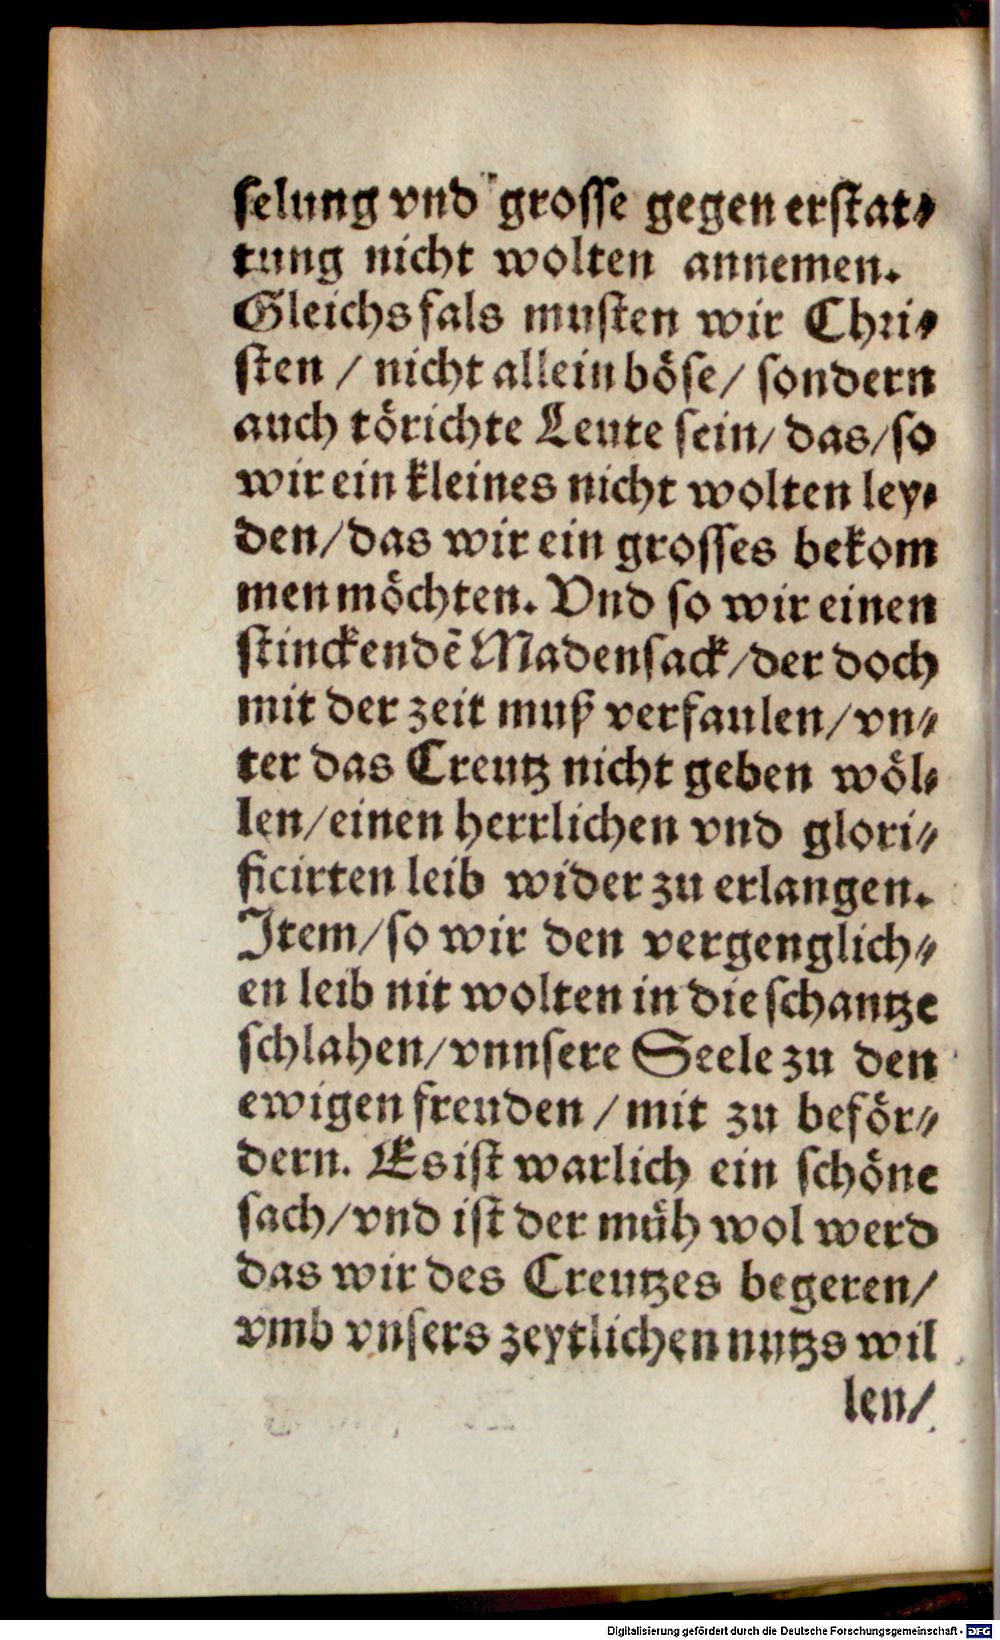 selung vnd grosse gegen erstat⸗
tung nicht wolten annemen.
Gleichsfals musten wir Chri⸗
sten / nicht allein böse/ sondern
auch törichte Leute sein/ das/so
wir ein kleines nicht wolten ley⸗
den/das wir ein grosses bekom
men möchten. Vnd so wir einen
stinckendẽ Madensack/der doch
mit der zeit muß verfaulen/vn⸗
ter das Creutz nicht geben wöl⸗
len/einen herrlichen vnd glori⸗
ficirten leib wider zu erlangen.
Item/so wir den vergenglich⸗
en leib nit wolten in die schantze
schlahen/vnnsere Seele zu den
ewigen freuden / mit zu beför⸗
dern. Es ist warlich ein schöne
sach/vnd ist der müh wol werd
das wir des Creutzes begeren/
vmb vnsers zeytlichen nutzs wil
len/
Digitalisierung gefördert durch die Deutsche Forschungsgemeinschaft - DFG